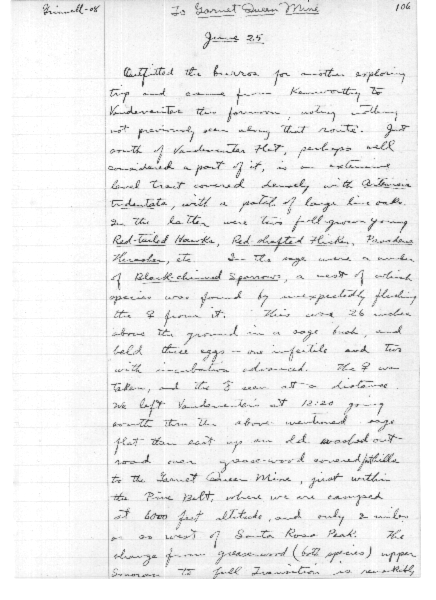 Grinnell-08
To Garnet Queen Mine
106
June 25
Outfitted the burros for another exploring
trip and came from Kenworthy to
Vandeventer this forenoon, noting nothing
not previously seen along that route. Just
south of Vandeventer Flat, perhaps well
considered a part of it, is an extensive
level tract covered densely with Artemisia
tridentata, with a patch of large live oaks.
In the latter were two full-grown young
Red-tailed Hawks, Red-shafted Flicker, Pasadena
Thrasher, etc. In the sage were a number
of Black-chinned Sparrows, a nest of which
species was found by unexpectedly flushing
the ♀ from it. This was 26 inches
above the ground in a sage bush, and
held three eggs - one infertile and two
with incubation advanced. The ♀ was
taken, and the ♂ seen at a distance.
We left Vandeventer's at 12:20 going
south thru the above mentioned sage
flat then east up an old washed-out
road over grease-wood covered foothills
to the Garnet Queen Mine, just within
the Pine Belt, where we are camped
at 6000 feet altitude, and only 2 miles
or so west of Santa Rosa Peak. The
change from greasewood (both species) upper
Sonoran to full Transition is remarkably